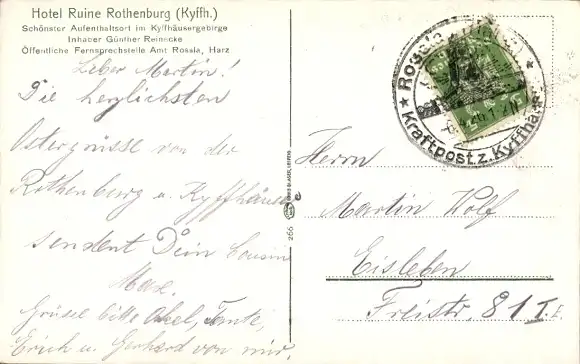 Hotel Ruine Rothenburg (Kyffh.)
Schönster Aufenthaltsort im Kyffhäusergebirge
Inhaber Günther Reinecke
Öffentliche Fernsprechstelle Amt Rossla, Harz
Lieber Martin!
Die herzlichsten
Ostergrüsse von der
Rothenburg u. Kyffhäuser
sendent Dein Cousin
Max.
Grüsse bitte Onkel, Tante,
Erich u. Gerhard von mir.
266
Herrn
Martin Wolf
Eisleben
Freistr. 81 I.
Kraftpost z. Kyffhäuser